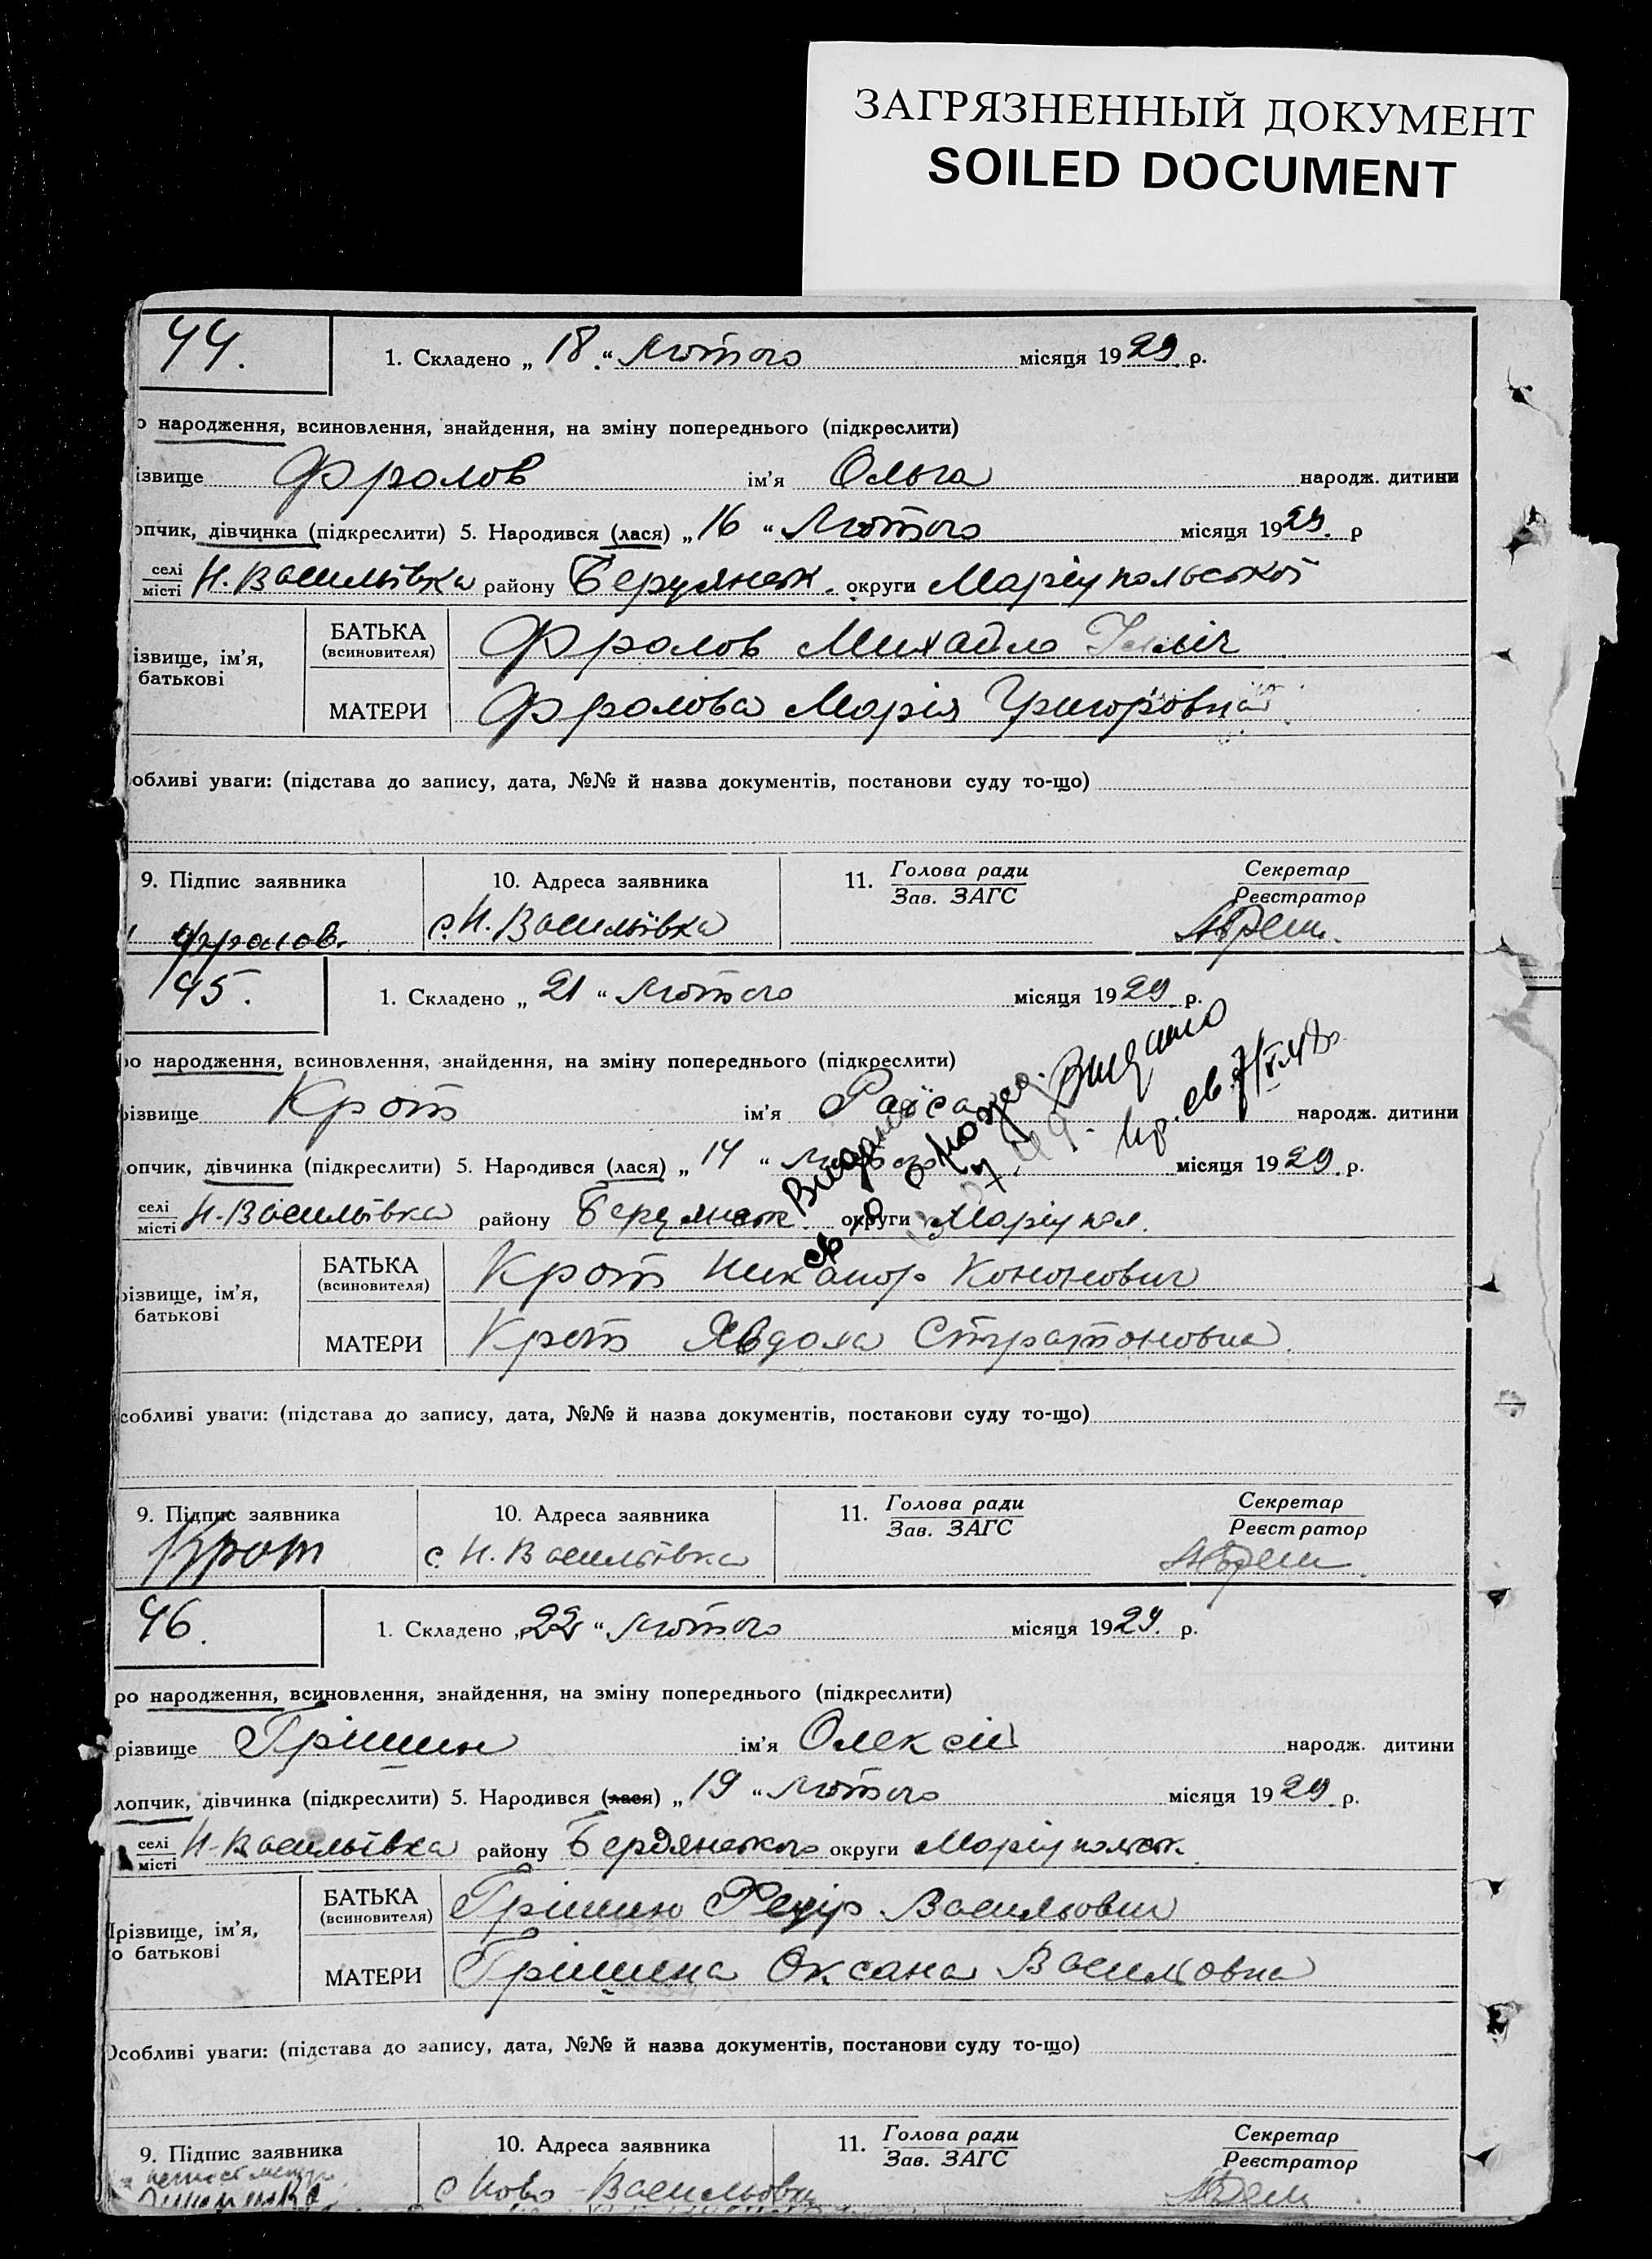 ЗАГРЯЗНЕННЫЙ ДОКУМЕНТ
SOILED DOCUMENT
44.
1. Складено „ 18 “ Лютого місяця 1929 р.
о народження, всиновлення, знайдення, на зміну попереднього (підкреслити)
ізвище Фролов ім’я Ольга народж. дитини
опчик, дівчинка (підкреслити) 5. Народився (лася) „ 16 “ Лютого місяця 1929. р
селі
місті Н. Васильівка району Бердянськ. округи Маріупольської
ізвище, ім’я,
батькові
БАТЬКА
(всиновителя) Фролов Михайло
МАТЕРИ Фролова Марія Григоровна
обливі уваги: (підстава до запису, дата, №№ й назва документів, постанови суду то-що)
9. Підпис заявника 10. Адреса заявника 11. Голова ради
Зав. ЗАГС Секретар
Реєстратор
Фролов. с. Н. Васильівка
45.
1. Складено „ 21 “ Лютого місяця 1929 р.
ро народження, всиновлення, знайдення, на зміну попереднього (підкреслити)
різвище Крот ім’я Раїса народж. дитини
опчик, дівчинка (підкреслити) 5. Народився (лася) „ 14 “ Лютого місяця 1929. р.
селі
місті Н-Васильівка району Бердянськ. округи Маріупол.
Видано
різвище, ім’я,
батькові
БАТЬКА
(всиновителя) Крот Никанор Кононович
МАТЕРИ Крот Явдоха Стратоновна
собливі уваги: (підстава до запису, дата, №№ й назва документів, постанови суду то-що)
9. Підпис заявника 10. Адреса заявника 11. Голова ради
Зав. ЗАГС Секретар
Реєстратор
Крот с. Н. Васильівка
46.
1. Складено „ 22 “ Лютого місяця 1929. р.
ро народження, всиновлення, знайдення, на зміну попереднього (підкреслити)
різвище Грішин ім’я Олексій народж. дитини
лопчик, дівчинка (підкреслити) 5. Народився (лася) „ 19 “ Лютого місяця 1929. р.
селі
місті Н-Васильівка району Бердянського округи Маріупольськ.
Прізвище, ім’я,
о батькові
БАТЬКА
(всиновителя) Грішин Федір Васильович
МАТЕРИ Грішина Оксана Васильовна
Особливі уваги: (підстава до запису, дата, №№ й назва документів, постанови суду то-що)
9. Підпис заявника 10. Адреса заявника 11. Голова ради
Зав. ЗАГС Секретар
Реєстратор
с Ново-Васильовка